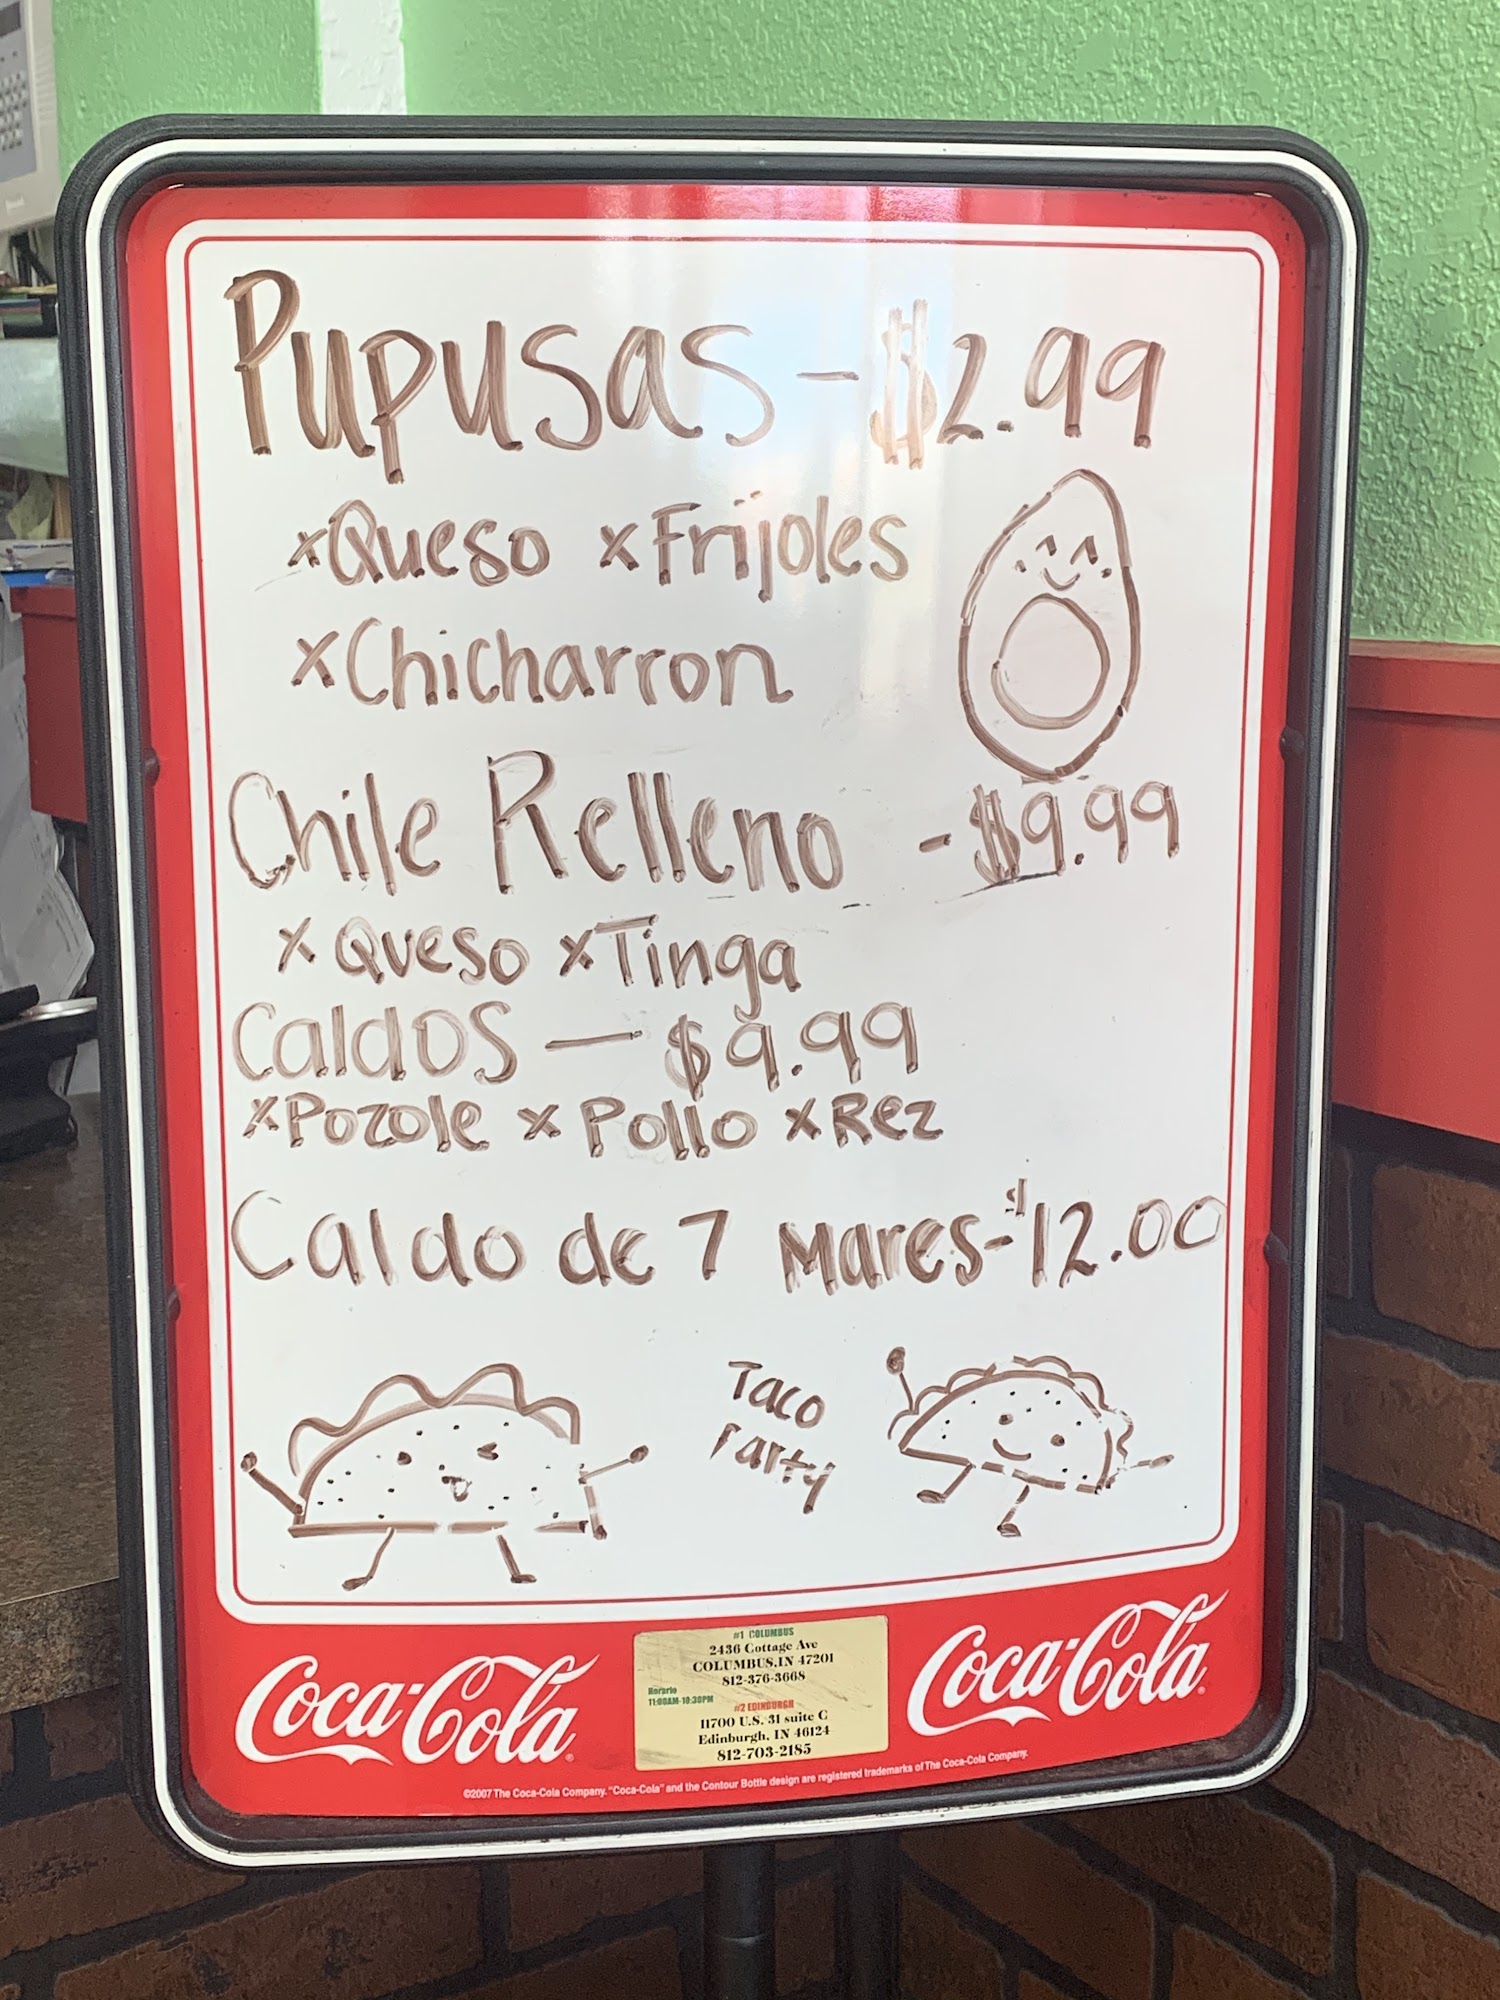 Pupusas - $2.99
xQueso xFrijoles
xChicharron
Chile Relleno - $9.99
x Queso xTinga
Caldos — $9.99
xPozole x Pollo xRez
Caldo de 7 Mares-$12.00
Taco
Party
Coca-Cola
#1 COLUMBUS
2436 Cottage Ave
COLUMBUS,IN 47201
812-376-3668
Horario
11:00AM-10:30PM
#2 EDINBURGH
11700 U.S. 31 suite C
Edinburgh, IN 46124
812-703-2185
Coca-Cola
©2007 The Coca-Cola Company. "Coca-Cola" and the Contour Bottle design are registered trademarks of The Coca-Cola Company.